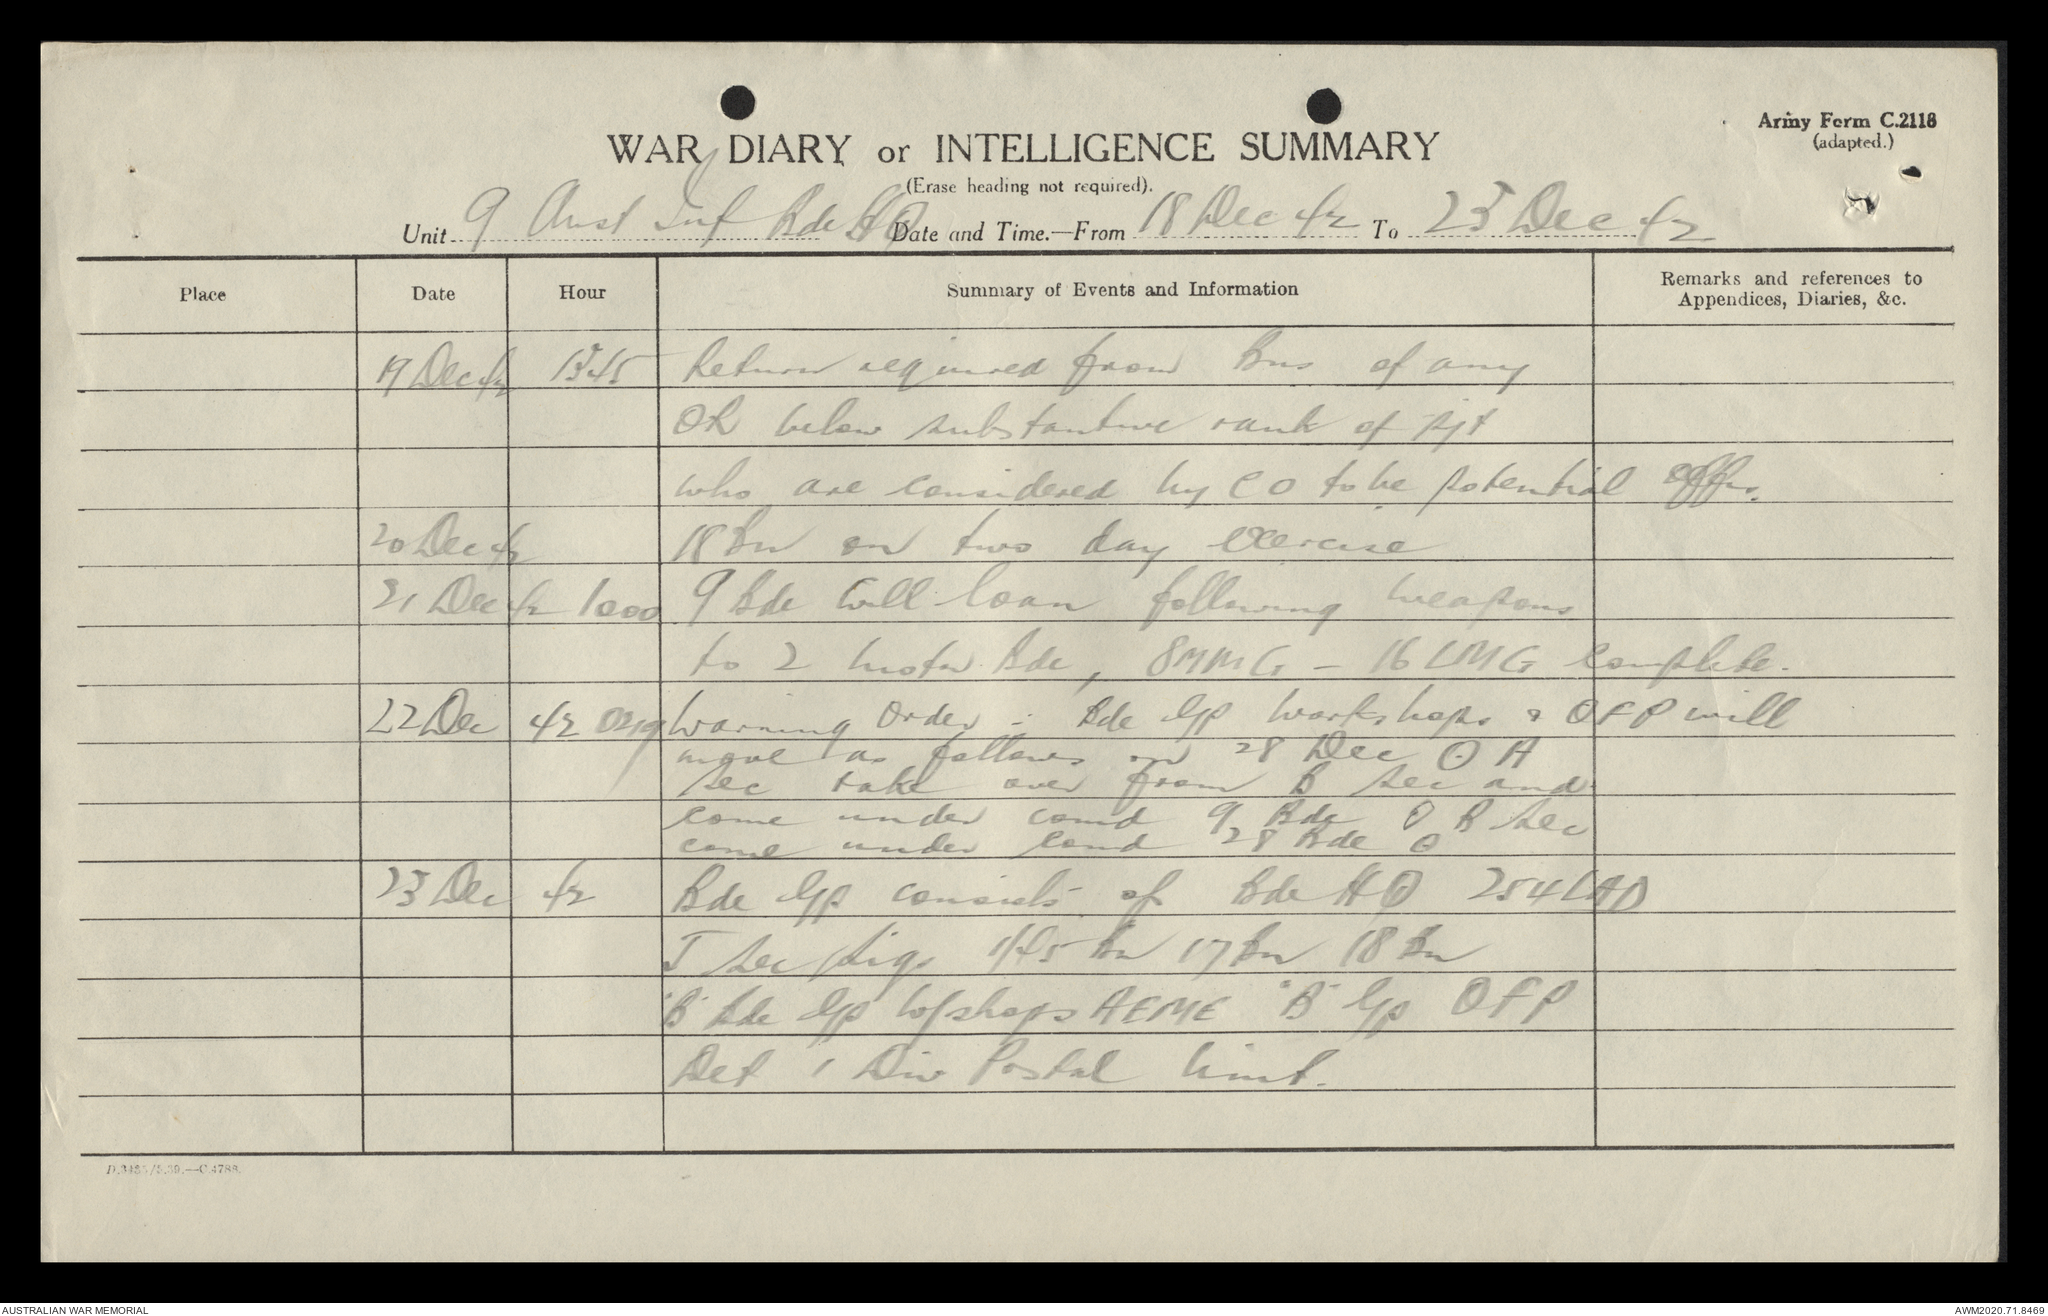 Army Form C.2118
(adapted.)
WAR DIARY or INTELLIGENCE SUMMARY
(Erase heading not required).
Unit 9 Aust Inf Bde HQ Date and Time.—From 18 Dec 42 To 23 Dec 42
Place Date Hour Summary of Events and Information Remarks and references to
Appendices, Diaries, &c.
19 Dec 42 1545 Return required from Bns of any
OR below substantive rank of Sjt
who are considered by CO to be potential offrs.
20 Dec 42 18 Bn on two day exercise
21 Dec 42 1000 9 Bde will loan following weapons
to 2 Motor Bde, 8 MMG - 16 LMG complete.
22 Dec 42 Warning Order - Bde Gp Workshops & OFP will
move as follows on 28 Dec A
Sec take over from B Sec and
come under comd 9 Bde B Sec
come under comd 28 Bde
23 Dec 42 Bde Gp consists of Bde HQ 254 LAD
J Sec Sigs 1/45 Bn 17 Bn 18 Bn
"B" Bde Gp W/shops AEME "B" Gp OFP
Det 1 Div Postal Unit.
D.3435/5.39.—C.4788.
AUSTRALIAN WAR MEMORIAL
AWM2020.71.8469